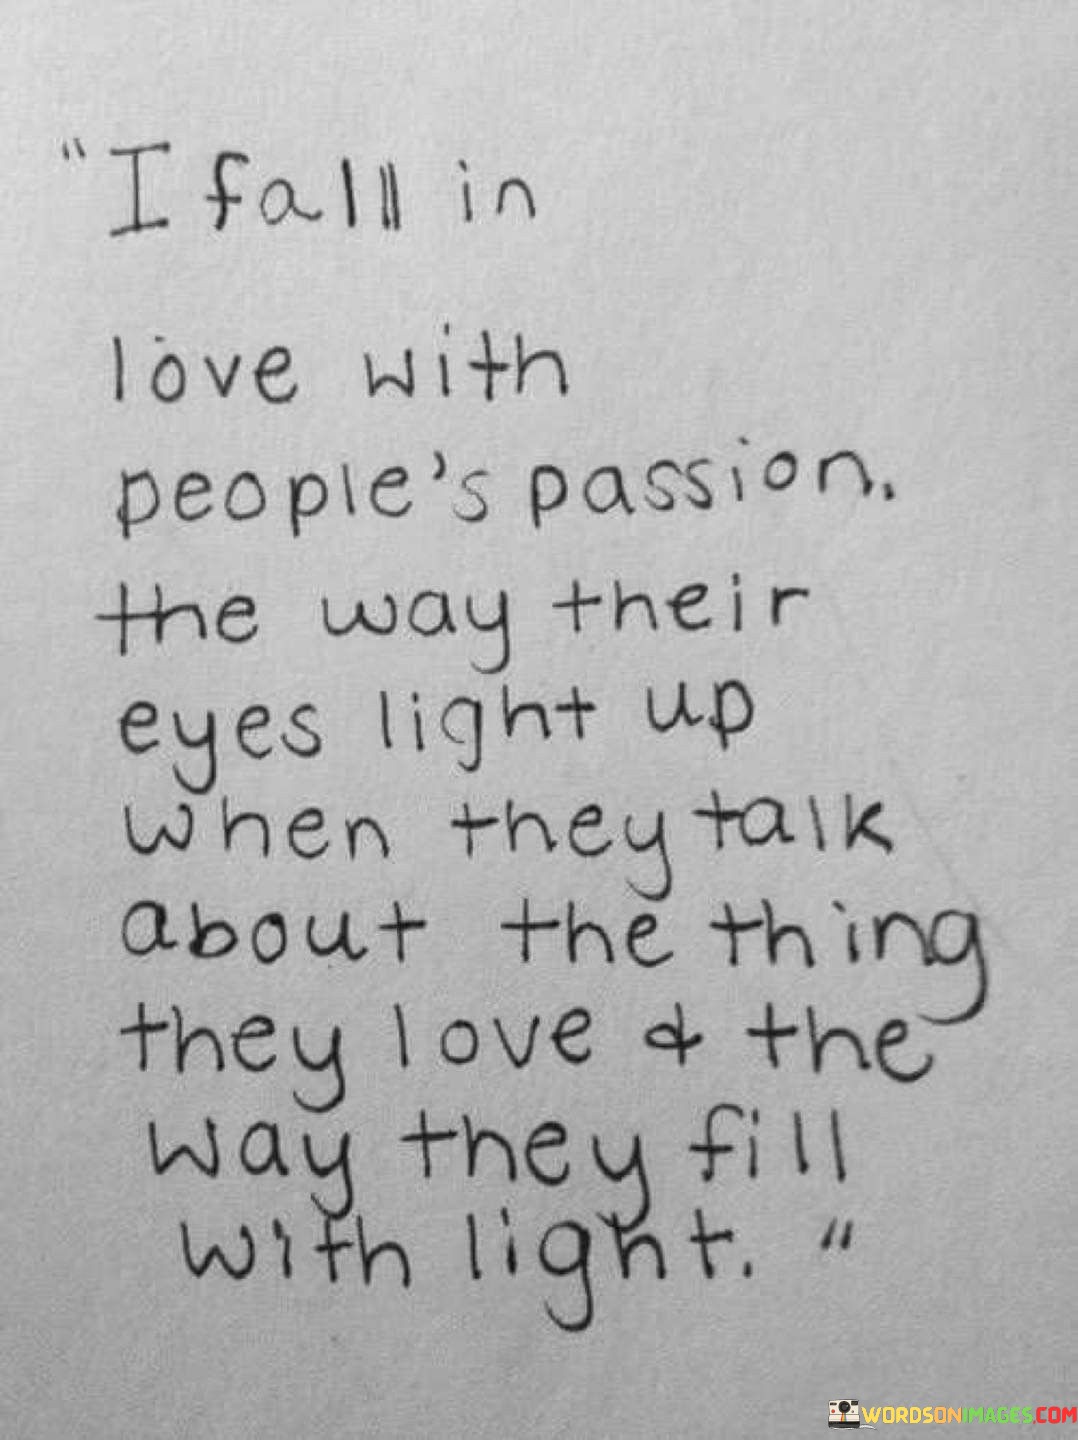 "I fall in
love with
people's passion.
the way their
eyes light up
when they talk
about the thing
they love & the
way they fill
with light."
WORDSONIMAGES.COM